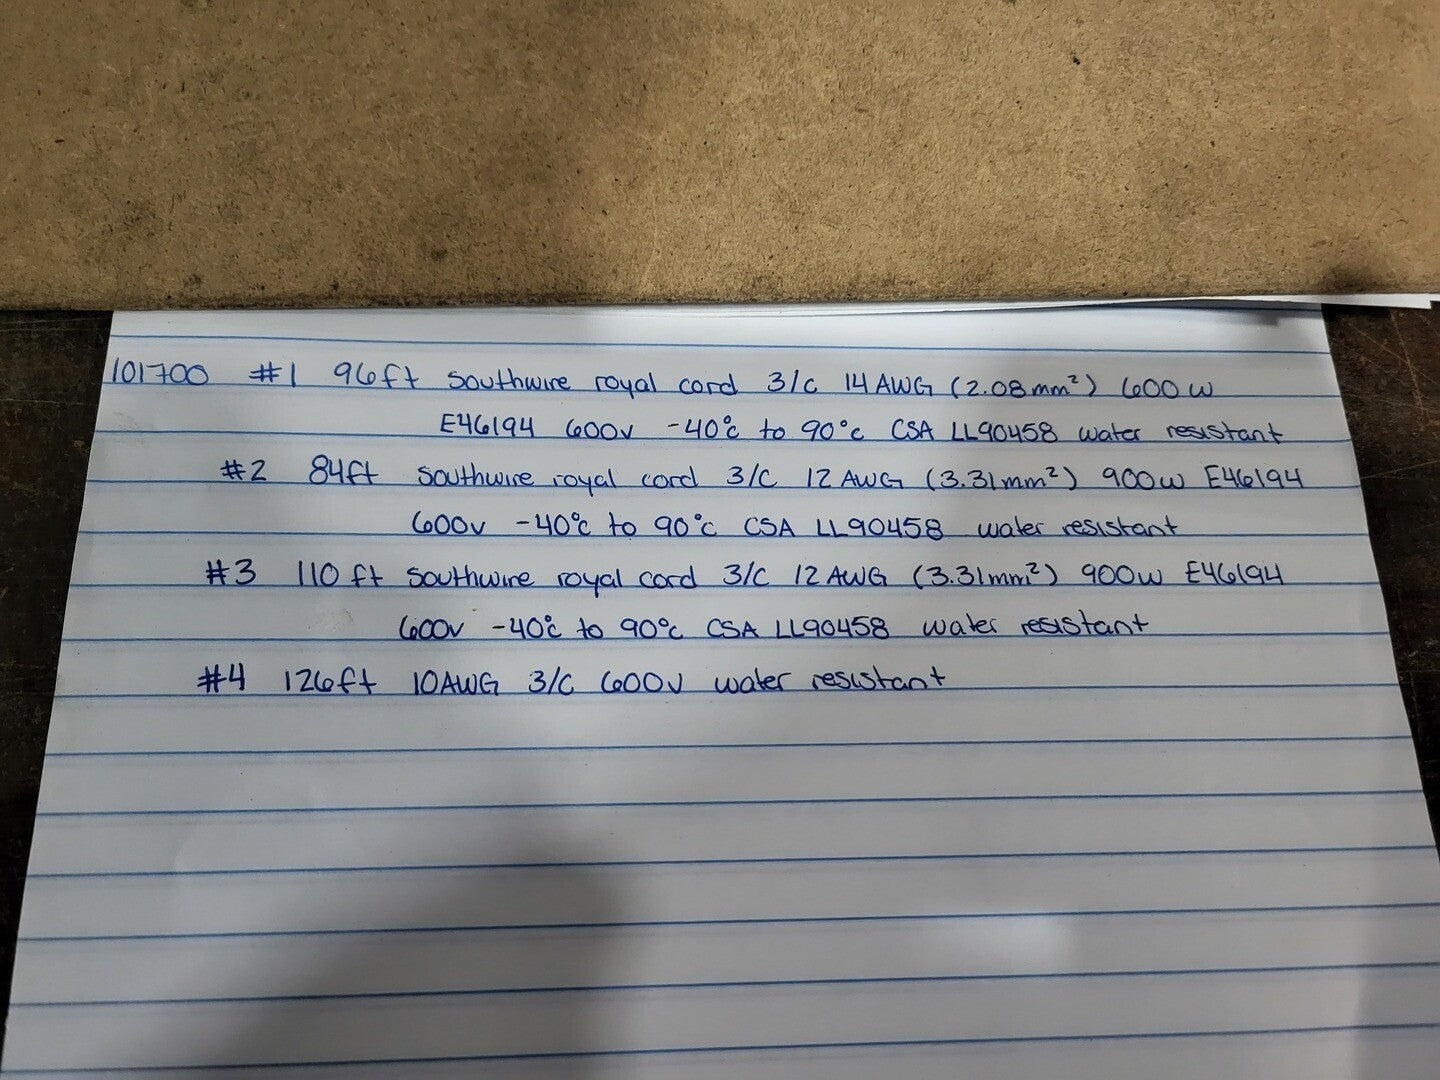 101700 #1 96ft Southwire royal cord 3/C 14 AWG (2.08mm²) 600w
E46194 600v -40°c to 90°c CSA LL90458 water resistant
#2 84ft Southwire royal cord 3/C 12 AWG (3.31mm²) 900w E46194
600v -40°c to 90°c CSA LL90458 water resistant
#3 110 ft Southwire royal cord 3/C 12 AWG (3.31mm²) 900w E46194
600v -40°c to 90°c CSA LL90458 water resistant
#4 126ft 10AWG 3/C 600v water resistant